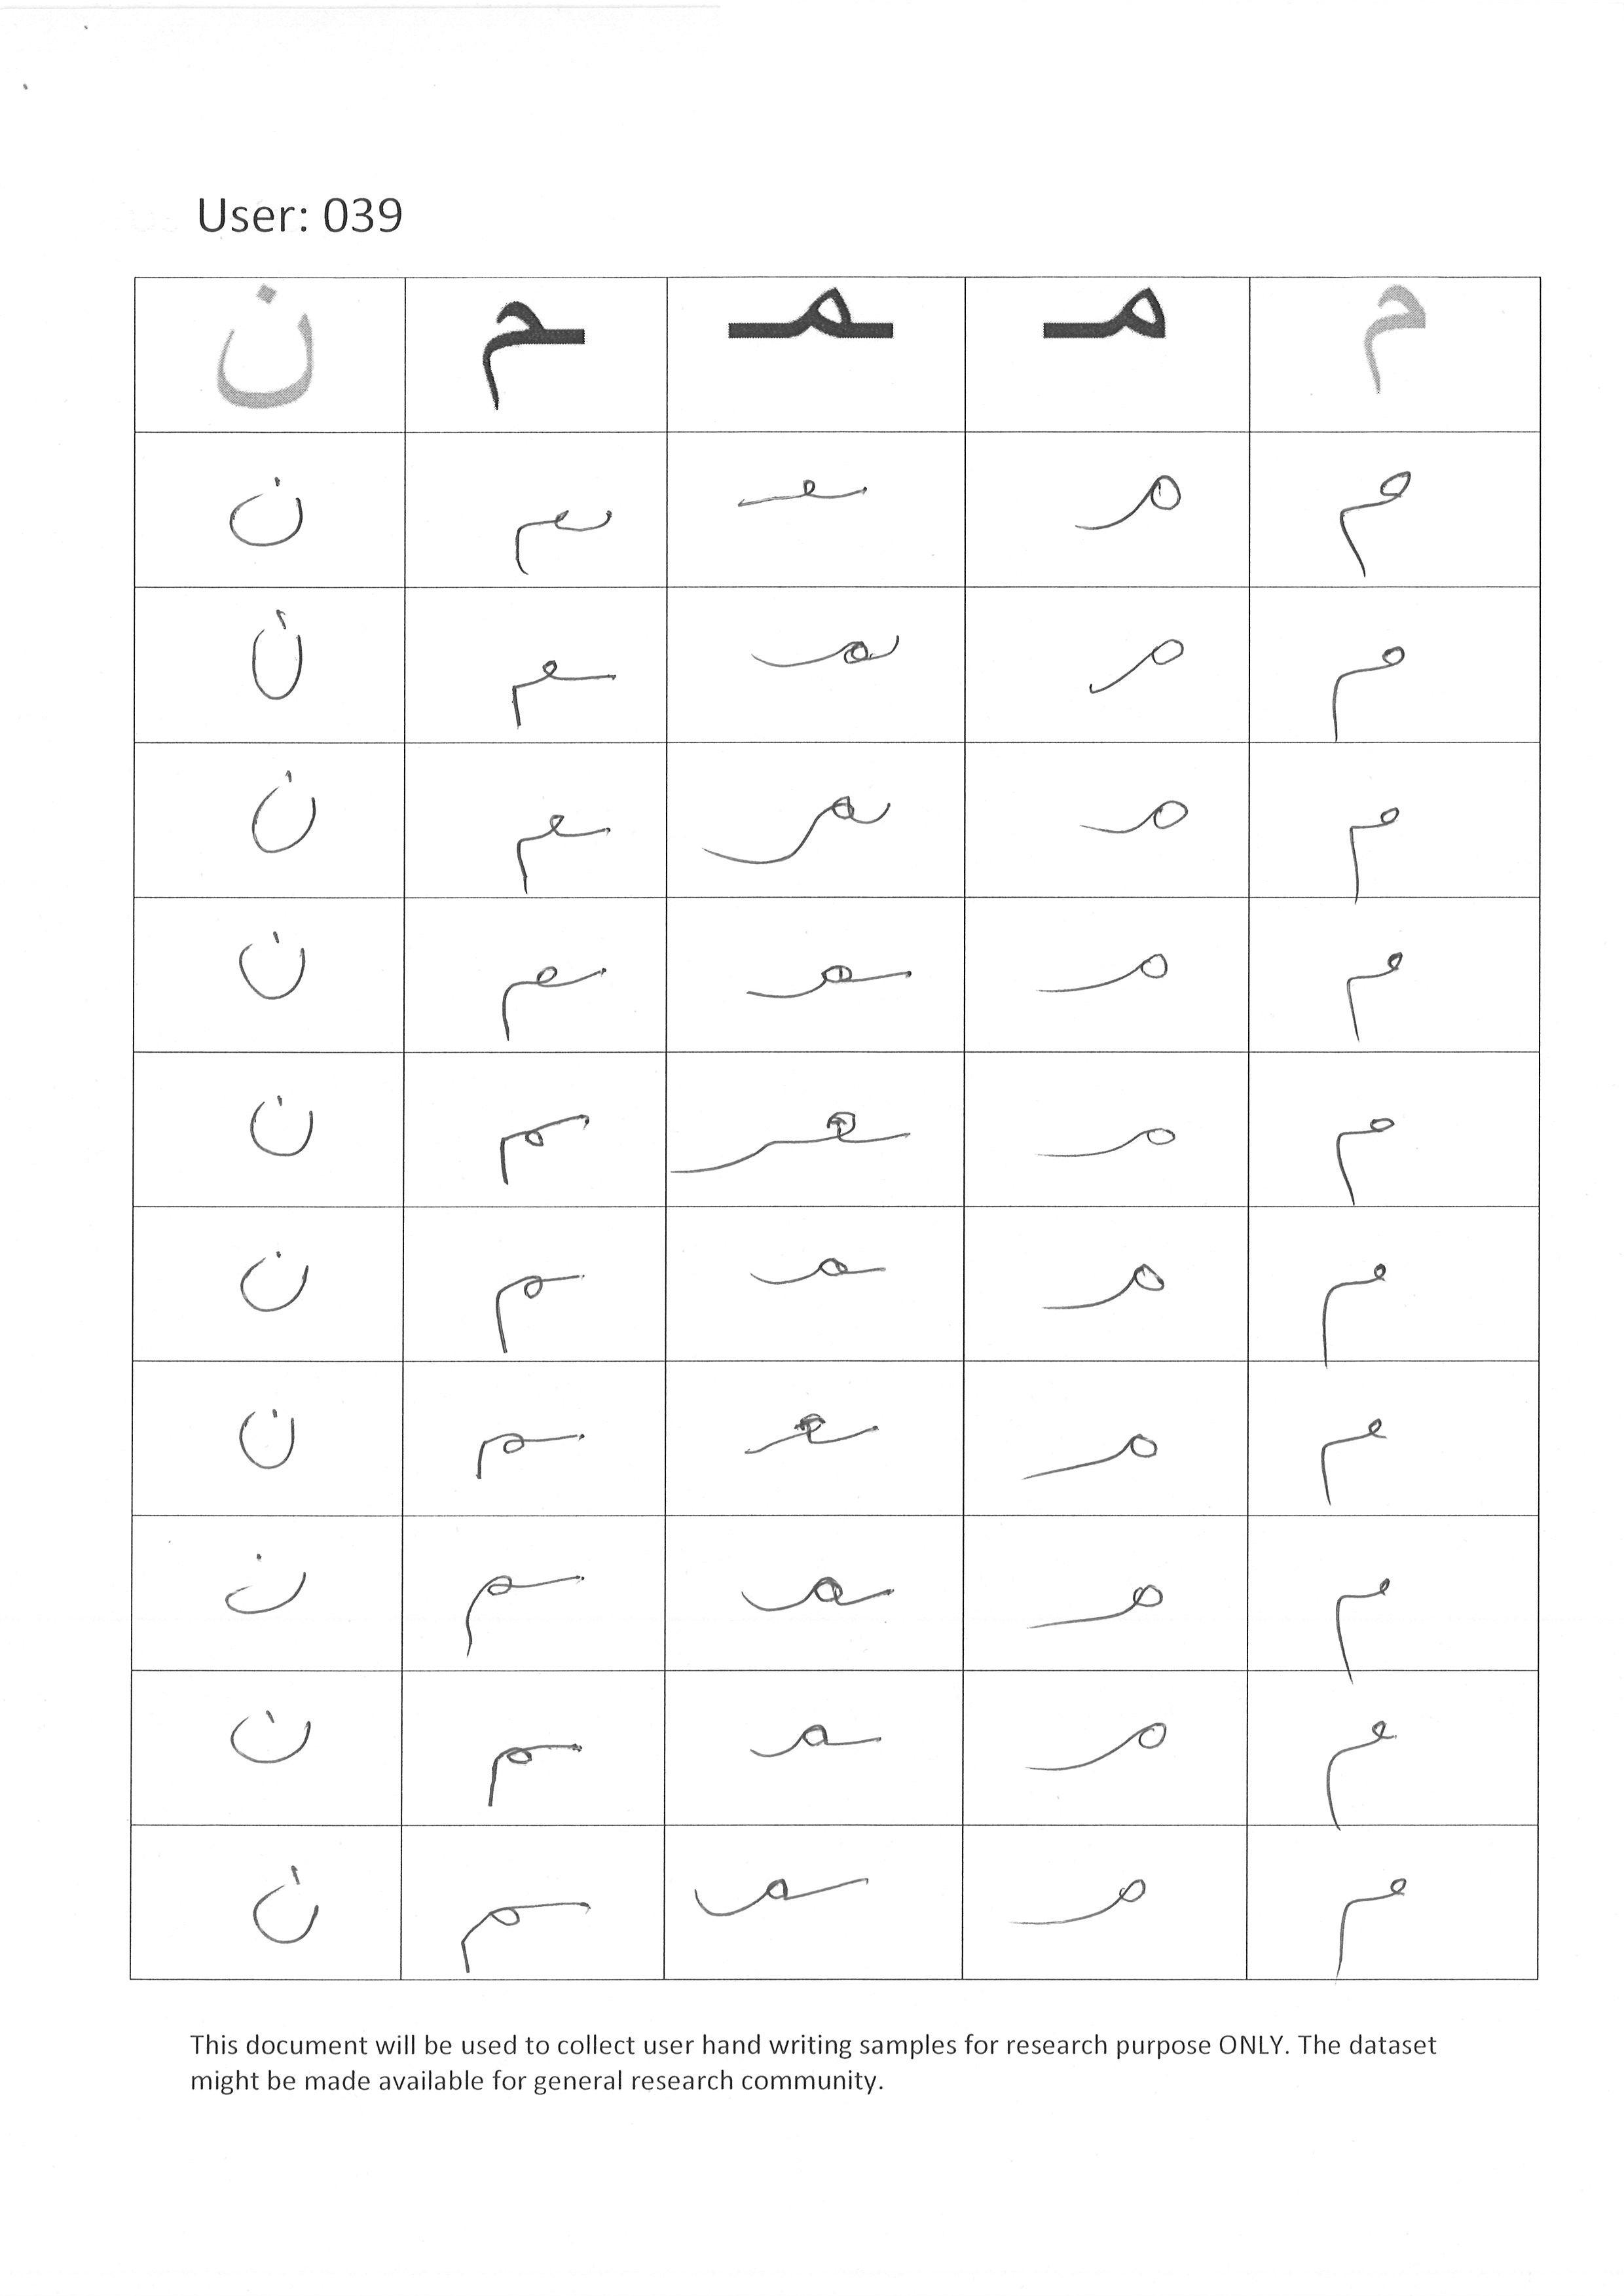 User: 039
م مـ ـمـ ـم ن
م مـ ـمـ ـم ن
م مـ ـمـ ـم ن
م مـ ـمـ ـم ن
م مـ ـمـ ـم ن
م مـ ـمـ ـم ن
م مـ ـمـ ـم ن
م مـ ـمـ ـم ن
م مـ ـمـ ـم ن
م مـ ـمـ ـم ن
م مـ ـمـ ـم ن
This document will be used to collect user hand writing samples for research purpose ONLY. The dataset
might be made available for general research community.